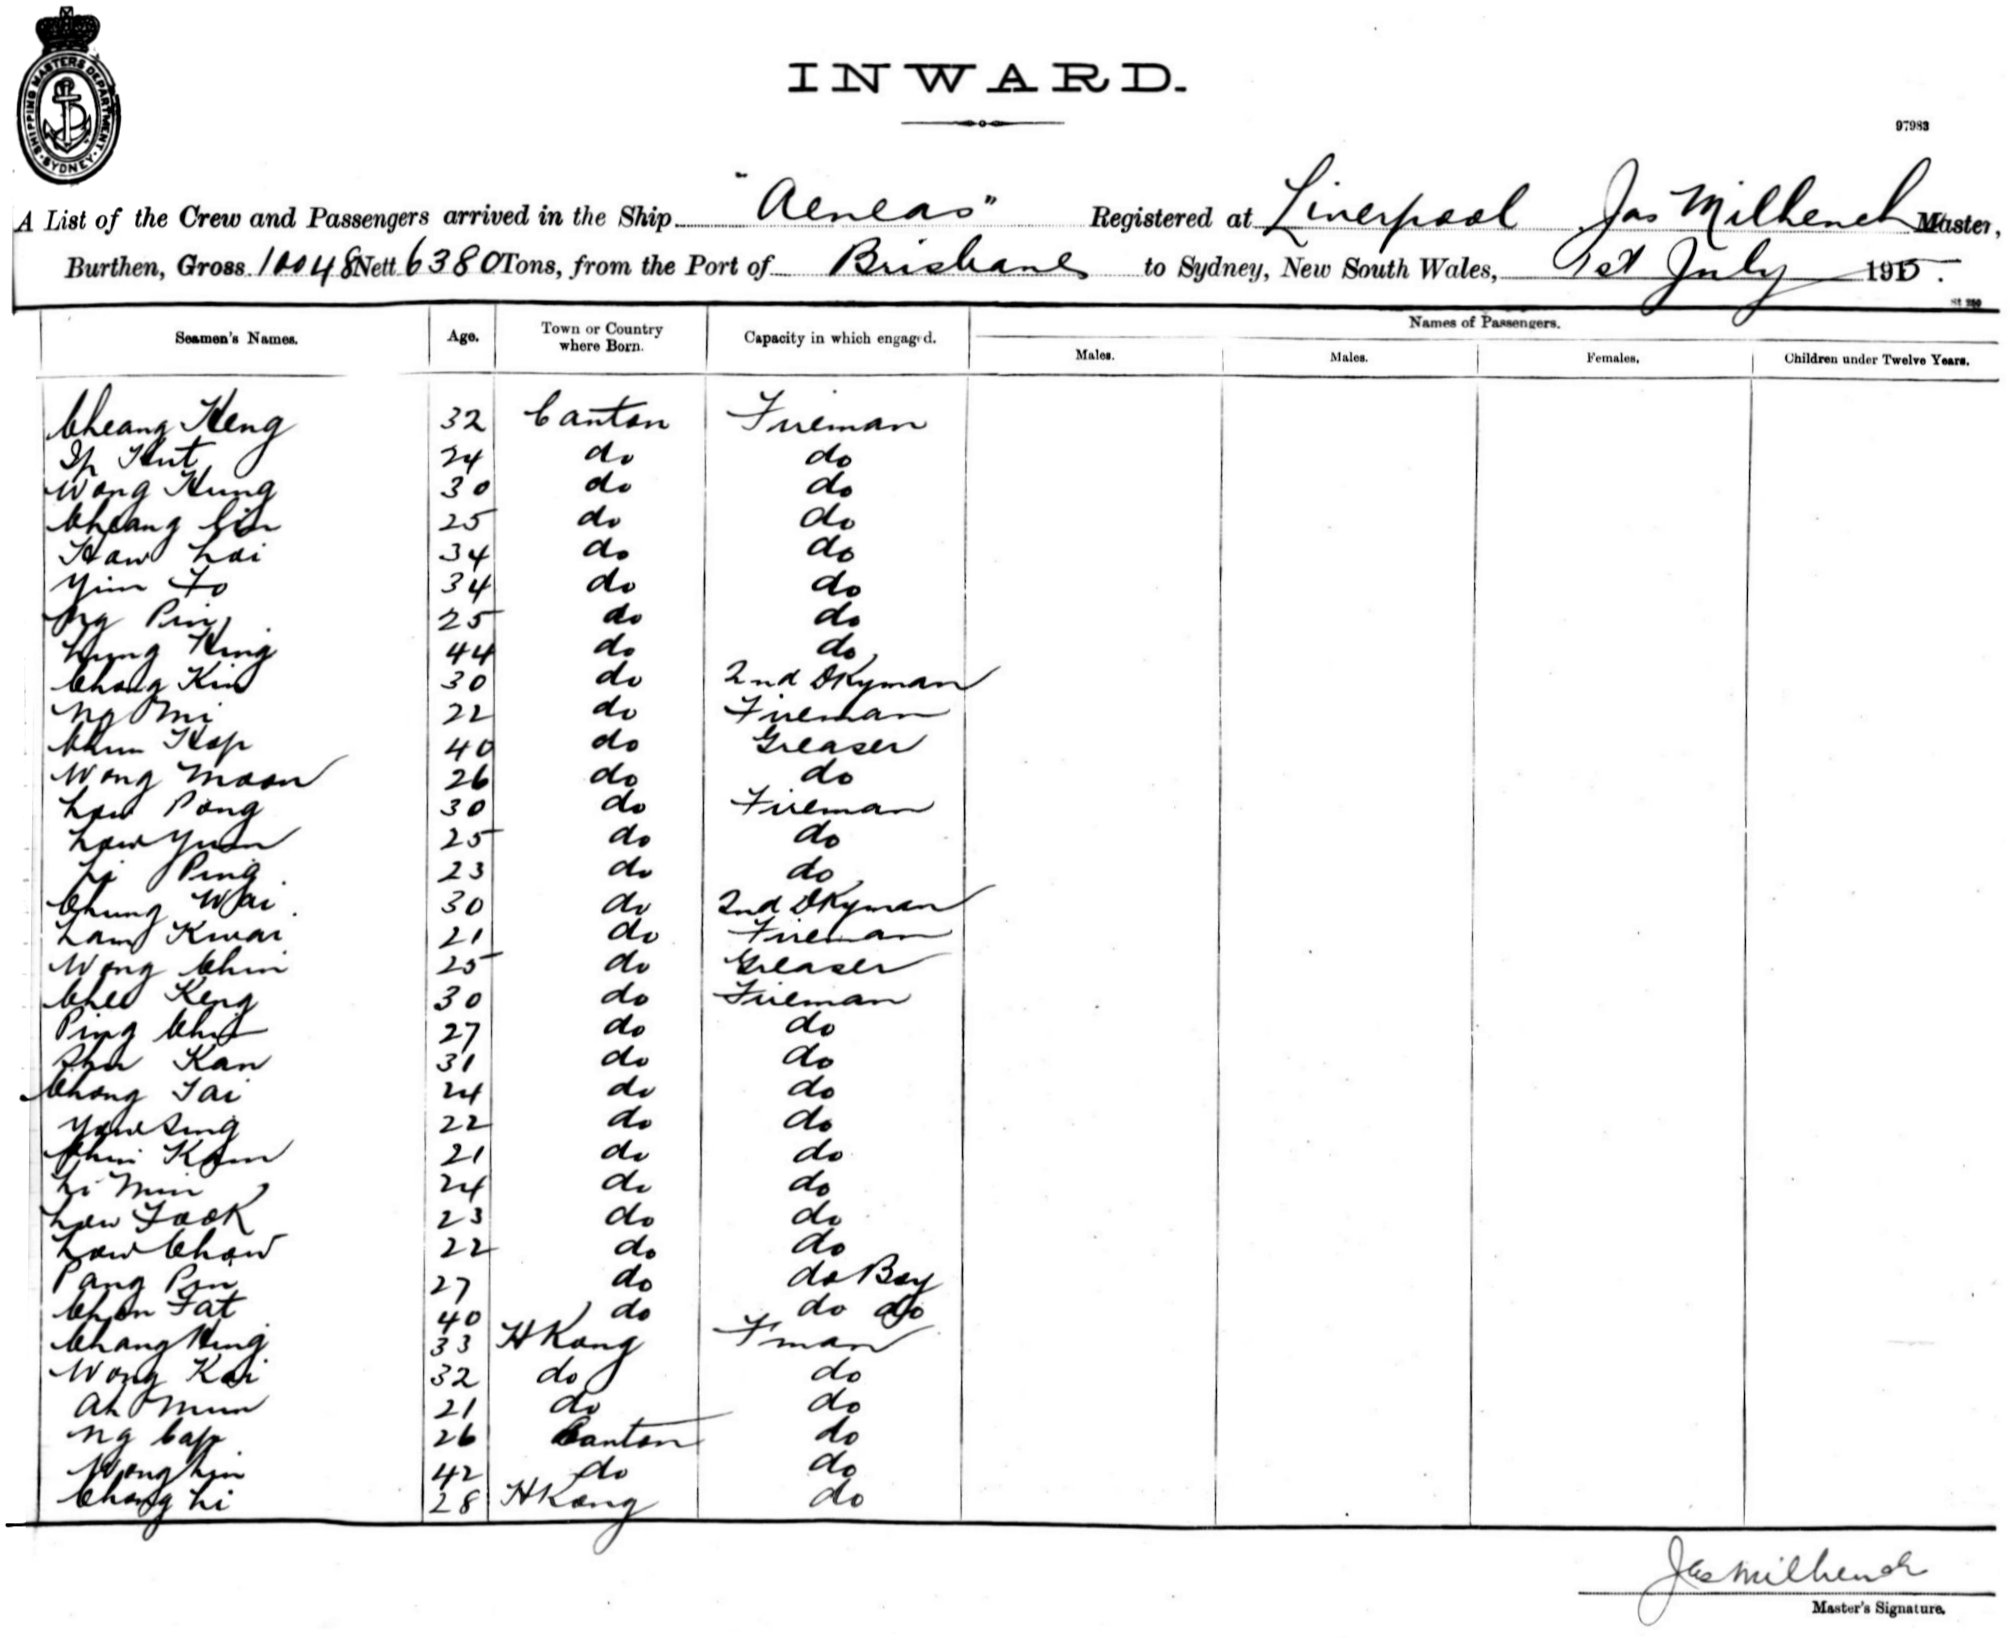 SHIPPING MASTERS DEPARTMENT SYDNEY
INWARD.
97983
A List of the Crew and Passengers arrived in the Ship "Aeneas" Registered at Liverpool Jas Milhench Master,
Burthen, Gross 10048 Nett 6380 Tons, from the Port of Brisbane to Sydney, New South Wales, 1st July 1915.
St 250
Seamen's Names. Age. Town or Country where Born. Capacity in which engaged. Names of Passengers.
Males. Males. Females. Children under Twelve Years.
Cheang Heng 32 Canton Fireman
Ip Hut 24 do do
Wong Hung 30 do do
Cheang 25 do do
Haw Loi 34 do do
Yim Fo 34 do do
Ng Pin 25 do do
Lung Hing 44 do do
Chong Kin 30 do 2nd Dkyman
Ng Mi 22 do Fireman
Chun Hop 40 do Greaser
Wong Moon 26 do do
Low Pong 30 do Fireman
Low Yuen 25 do do
Li Ping 23 do do
Chung Wai 30 do 2nd Dkyman
Lam Kwai 21 do Fireman
Wong Chin 25 do Greaser
Chee Keng 30 do Fireman
Ping 27 do do
Kan 31 do do
Chong Tai 24 do do
Yow Sing 22 do do
Kam 21 do do
Li Min 24 do do
Low Fook 23 do do
Low Chow 22 do do
Pang Pon 27 do do Boy
Chon Fat 40 do do do
Chang Hing 33 H Kong Fman
Wong Kai 32 do do
Ah Mun 21 do do
Ng Cap 26 Canton do
Wong Lin 42 do do
Chong Li 28 H Kong do
Jas Milhench
Master's Signature.